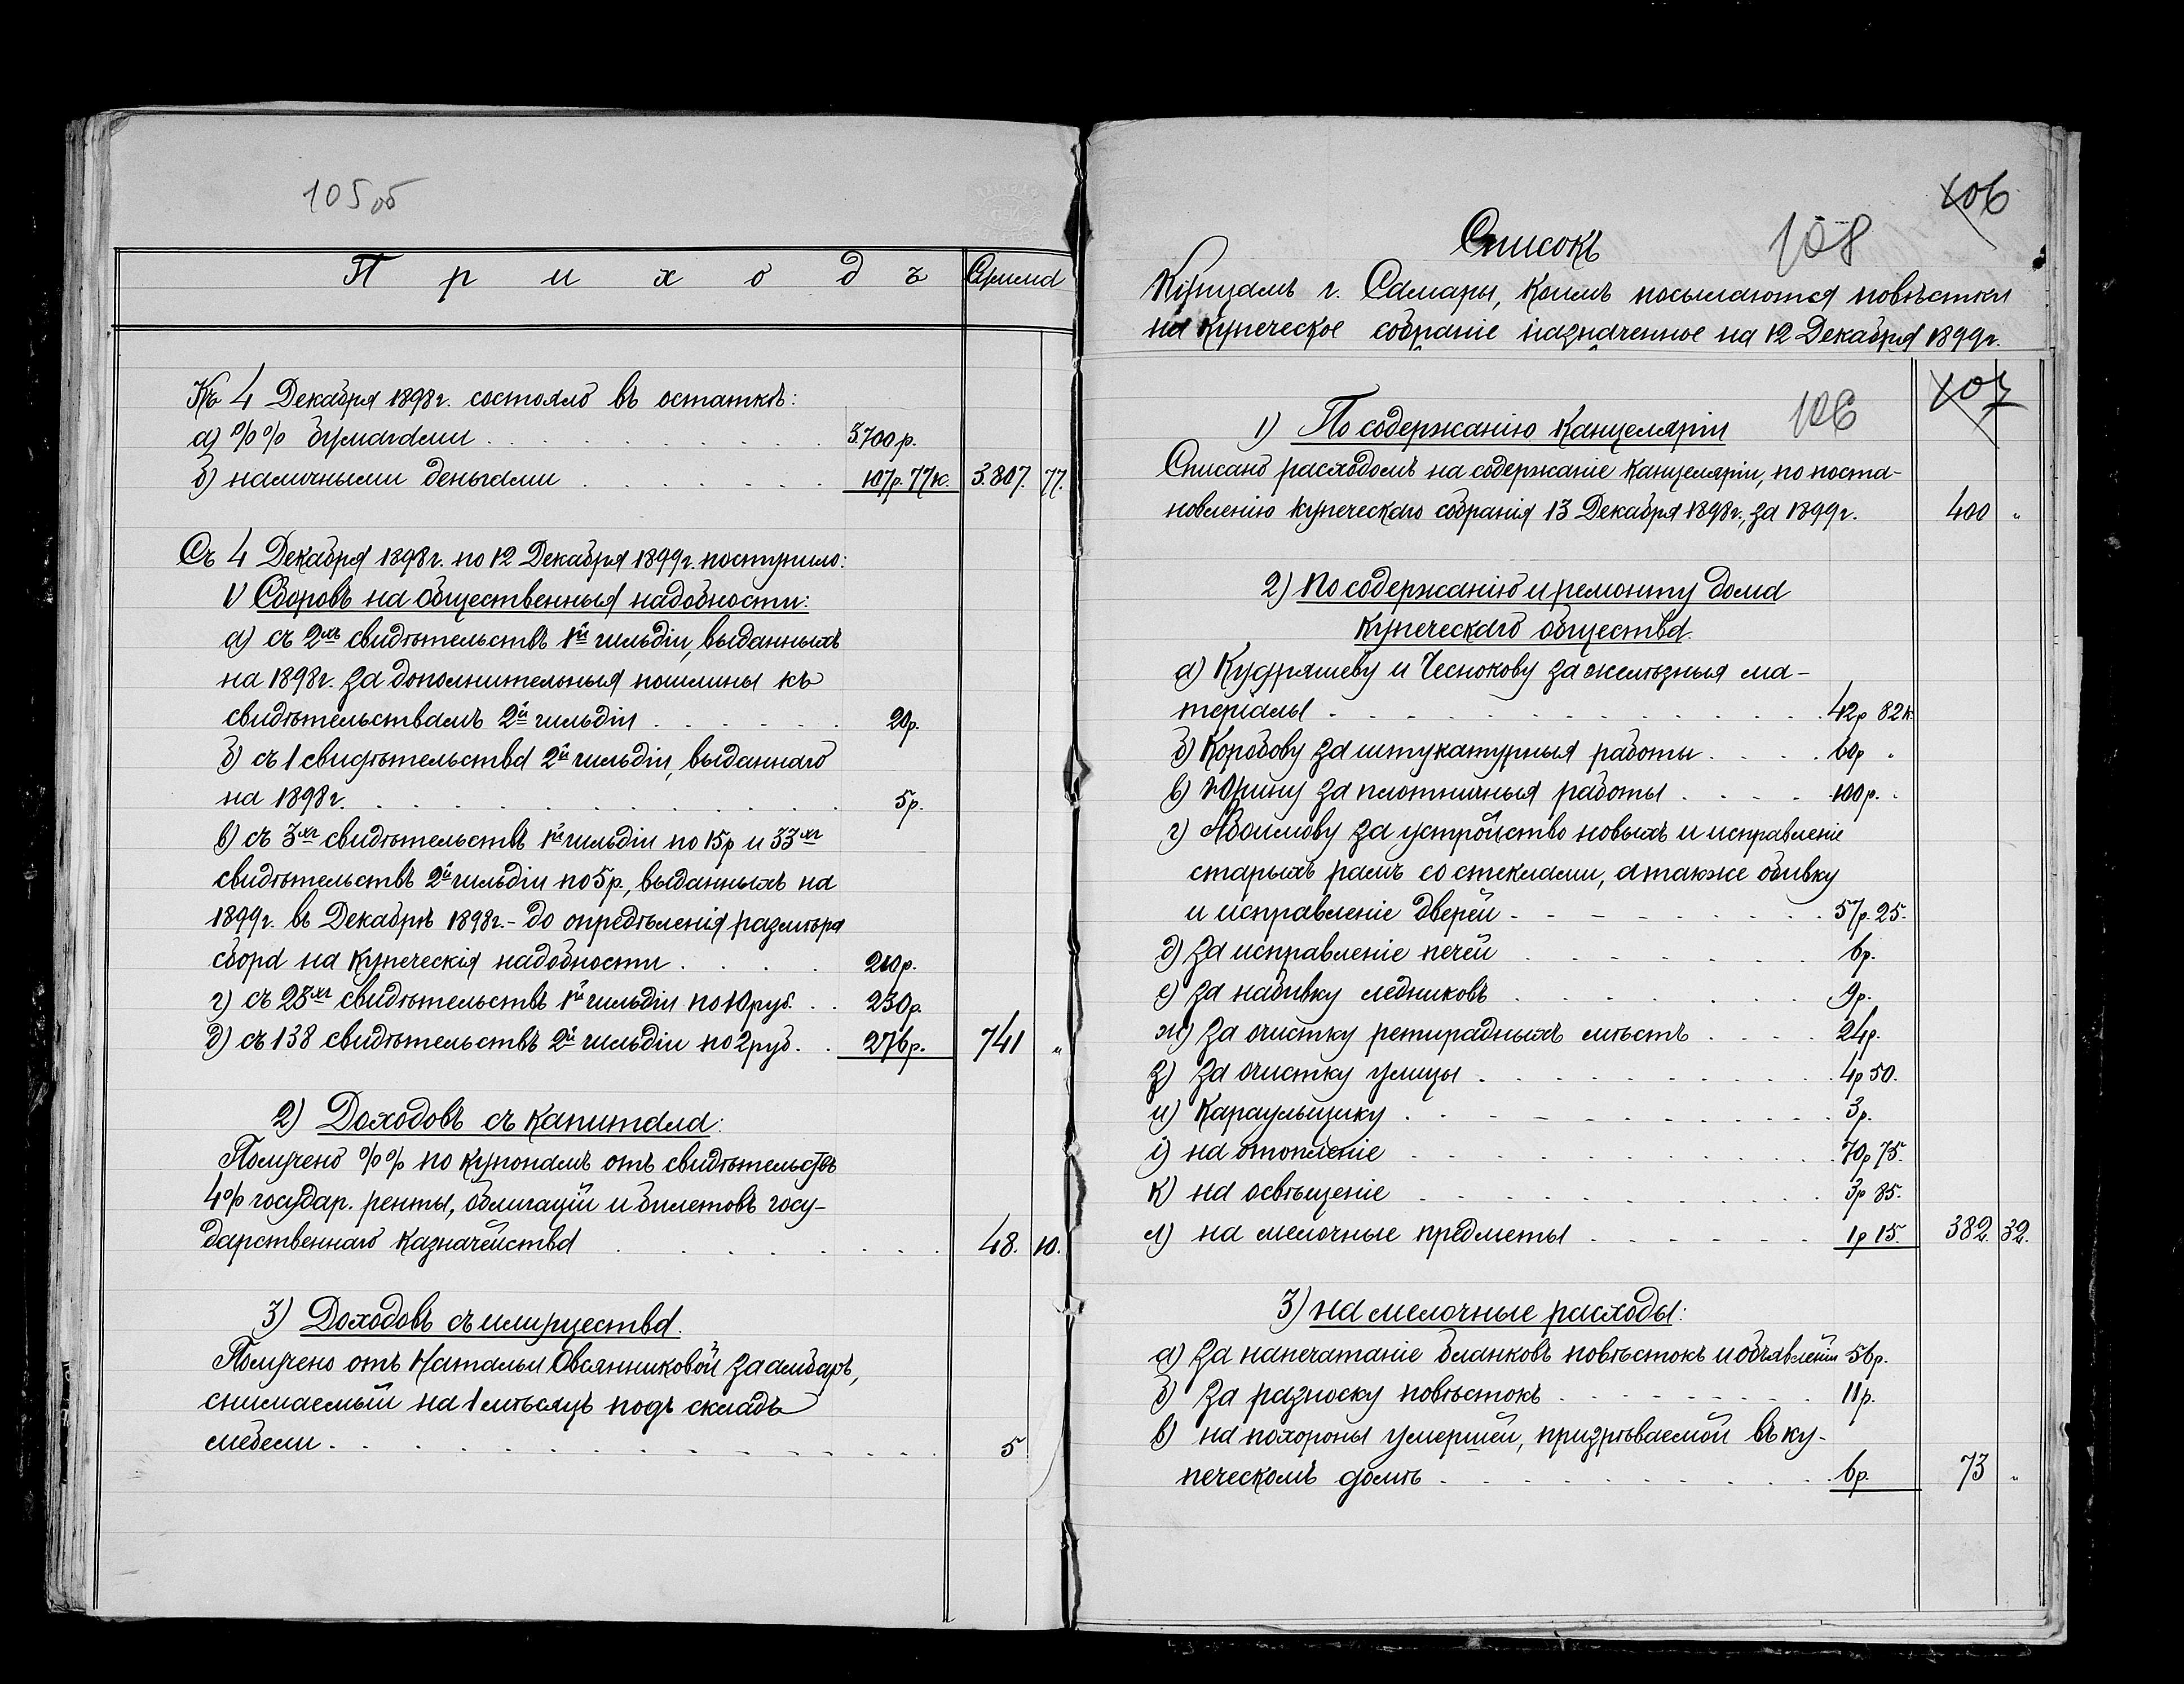 105 об
Приходъ Сумма
Къ 4 Декабря 1898 г. состояло въ остаткѣ:
а) %% бумагами . . . 3.700 р.
б) наличными деньгами . . . 107 р. 77 к. 3.807. 77.
Съ 4 Декабря 1898 г. по 12 Декабря 1899 г. поступило:
1) Сборовъ на общественныя надобности:
а) съ 2хъ свидѣтельствъ 1й гильдіи, выданныхъ
на 1898 г. за дополнительныя пошлины къ
свидѣтельствамъ 2й гильдіи . . . 20 р.
б) съ 1 свидѣтельства 2й гильдіи, выданнаго
на 1898 г. . . . 5 р.
в) съ 3хъ свидѣтельствъ 1й гильдіи по 15 р и 33хъ
свидѣтельствъ 2й гильдіи по 5 р., выданныхъ на
1899 г. въ Декабрѣ 1898 г. - до опредѣленія размѣра
сбора на купеческія надобности . . . 210 р.
г) съ 23хъ свидѣтельствъ 1й гильдіи по 10 руб. . . 230 р.
д) съ 138 свидѣтельствъ 2й гильдіи по 2 руб. . . 276 р. 741 "
2) Доходовъ съ капитала:
Получено %% по купонамъ отъ свидѣтельствъ
4% государ. ренты, облигаціи и билетовъ госу-
дарственнаго казначейства . . . 48. 10.
3) Доходовъ съ имущества.
Получено отъ Натальи Овсянниковой за амбаръ,
снимаемый на 1 мѣсяцъ подъ складъ
мебели . . . 5
106
Списокъ 108
Купцамъ г. Самары, коимъ посылаются повѣстки
на купеческое собраніе назначенное на 12 Декабря 1899 г.
107
1) По содержанію канцеляріи 106
Списано расходомъ на содержаніе канцеляріи, по поста-
новленію купеческаго собранія 13 Декабря 1898 г., за 1899 г. 400 "
2) По содержанію и ремонту дома
купеческаго общества.
а) Кудряшеву и Чеснокову за желѣзныя ма-
теріалы . . . 42 р 82 к.
б) Коробову за штукатурныя работы . . . 60 р "
в) Юрину за плотничныя работы . . . 100 р. "
г) Абоимову за устройство новыхъ и исправленіе
старыхъ рамъ со стеклами, а также обивку
и исправленіе дверей . . . 57 р. 25.
д) за исправленіе печей . . . 6 р.
е) за набивку ледниковъ . . . 9 р.
ж) за очистку ретирадныхъ мѣстъ . . . 24 р.
з) за очистку улицы . . . 4 р 50.
и) Караульщику . . . 3 р.
і) на отопленіе . . . 70 р 75.
к) на освѣщеніе . . . 3 р 85.
л) на мелочные предметы . . . 1 р 15. 382. 32.
3) на мелочные расходы:
а) за напечатаніе бланковъ повѣстокъ и объявленіи 56 р.
б) за разноску повѣстокъ . . . 11 р.
в) на похороны умершей, призрѣваемой въ ку-
печескомъ домѣ . . . 6 р. 73 "